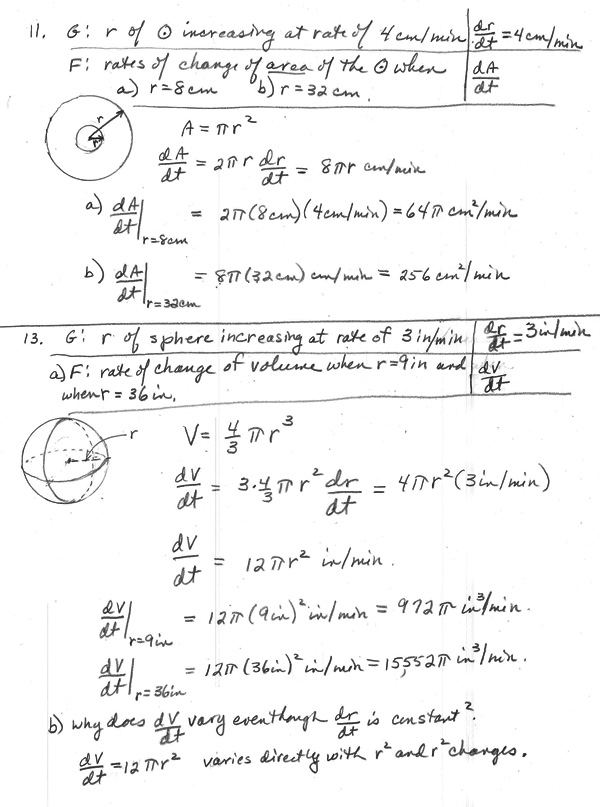 11. G: r of ⊙ increasing at rate of 4 cm/min dr/dt = 4 cm/min
F: rates of change of area of the ⊙ when dA/dt
a) r = 8 cm b) r = 32 cm.
r
r
A = πr²
dA/dt = 2πr dr/dt = 8πr cm/min
a) dA/dt|r=8cm = 2π(8cm)(4cm/min) = 64π cm²/min
b) dA/dt|r=32cm = 8π(32cm) cm/min = 256 cm²/min
13. G: r of sphere increasing at rate of 3 in/min dr/dt = 3 in/min
a) F: rate of change of volume when r = 9 in and dV/dt
when r = 36 in.
r
V = 4/3 πr³
dV/dt = 3·4/3 πr² dr/dt = 4πr²(3 in/min)
dV/dt = 12πr² in/min.
dV/dt|r=9in = 12π(9in)² in/min = 972π in³/min.
dV/dt|r=36in = 12π(36in)² in/min = 15,552π in³/min.
b) why does dV/dt vary eventhough dr/dt is constant?
dV/dt = 12πr² varies directly with r² and r² changes.